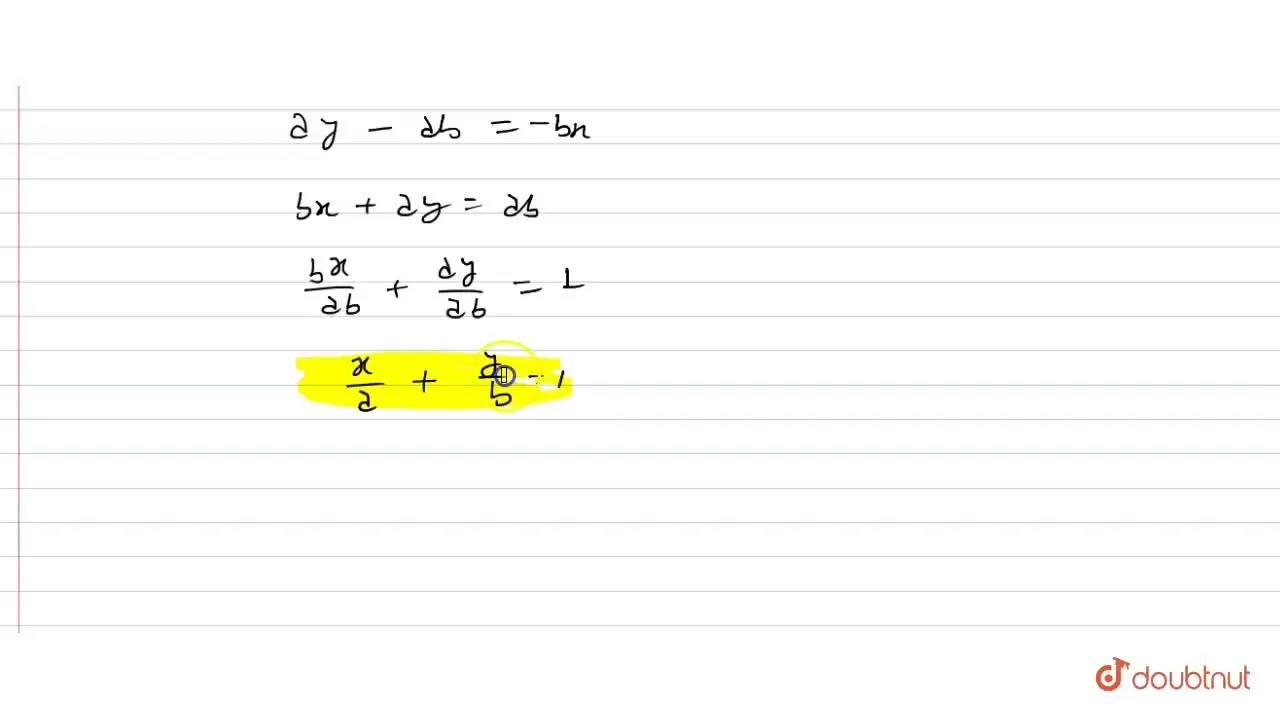 ay - ab = -bx
bx + ay = ab
bx/ab + ay/ab = 1
x/a + y/b = 1
doubtnut